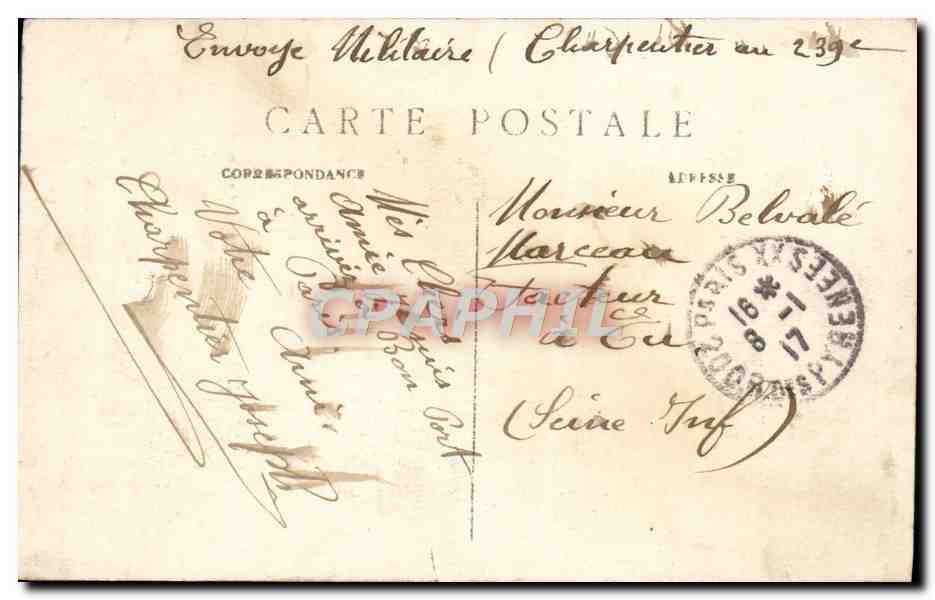 Envoye Militaire ( Charpentier au 239e
CARTE POSTALE
CORRESPONDANCE
ADRESSE
Mes Chers
Amie je suis
arrivez a Bon Port
à Paris
Votre Ami
Charpentier Joseph
Monsieur Belvalé
Marceau
Facteur
a Eu
(Seine Inf)
PARIS XX
PYRENEES
16 * 8 1 17
CPAPHIL